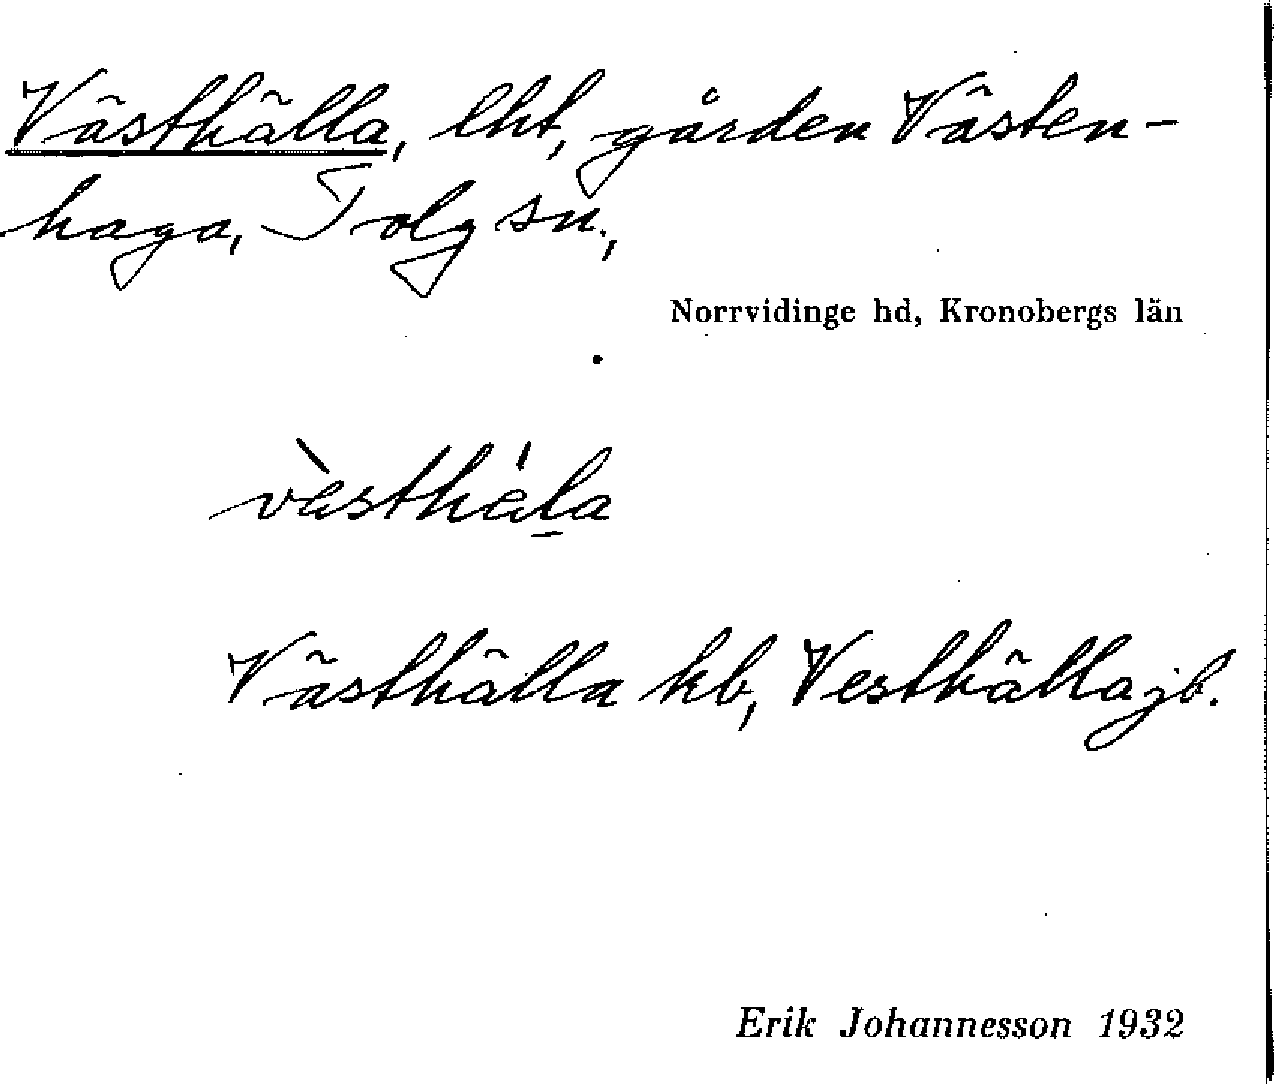 Västhälla, lht, gården Västen-
haga, Tolg sn.,
Norrvidinge hd, Kronobergs län
vàsthá̀la
Västhälla kb, Vesthälla jb.
Erik Johannesson 1932